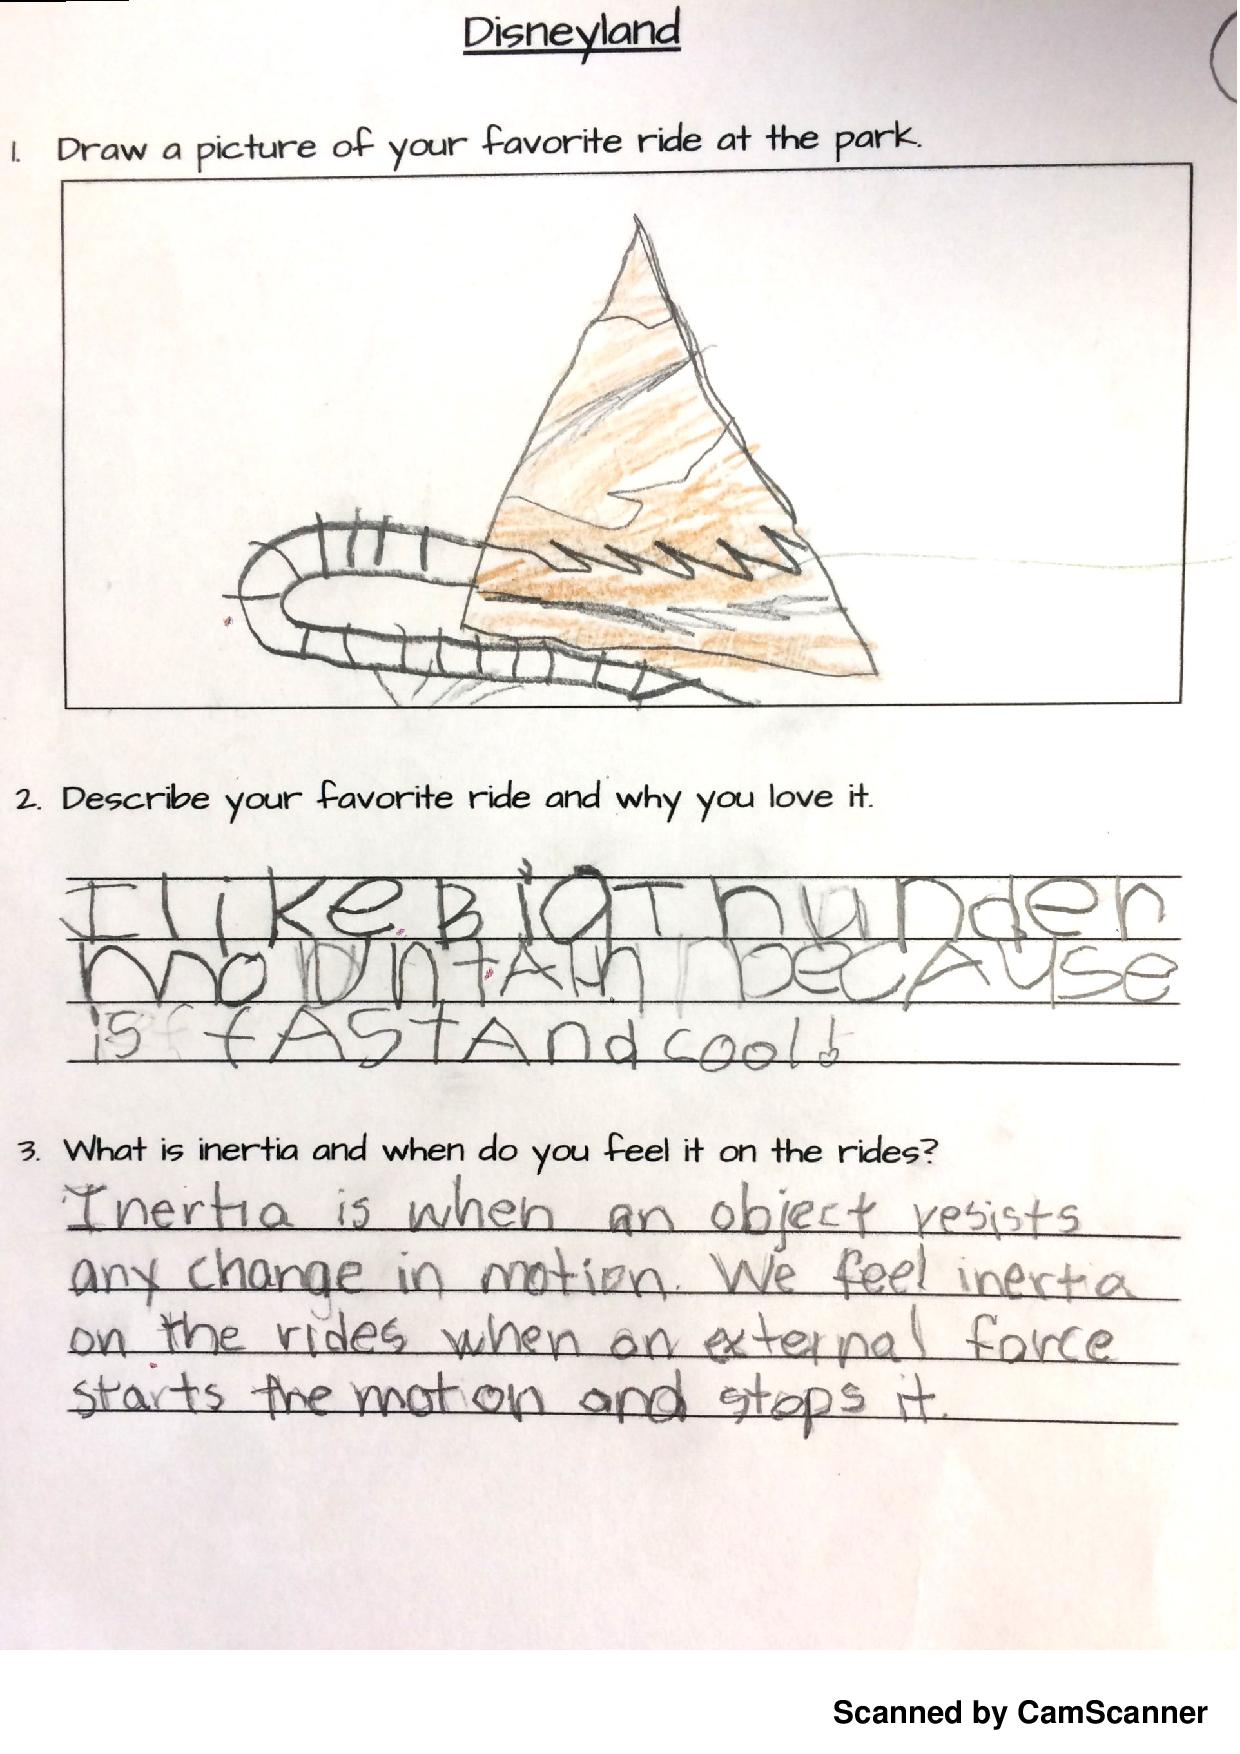 Disneyland
1. Draw a picture of your favorite ride at the park.
2. Describe your favorite ride and why you love it.
I like BiG Thunder
mountAin becAuse
is fAST And cool!
3. What is inertia and when do you feel it on the rides?
Inertia is when an object resists
any change in motion. We feel inertia
on the rides when an external force
starts the motion and stops it.
Scanned by CamScanner